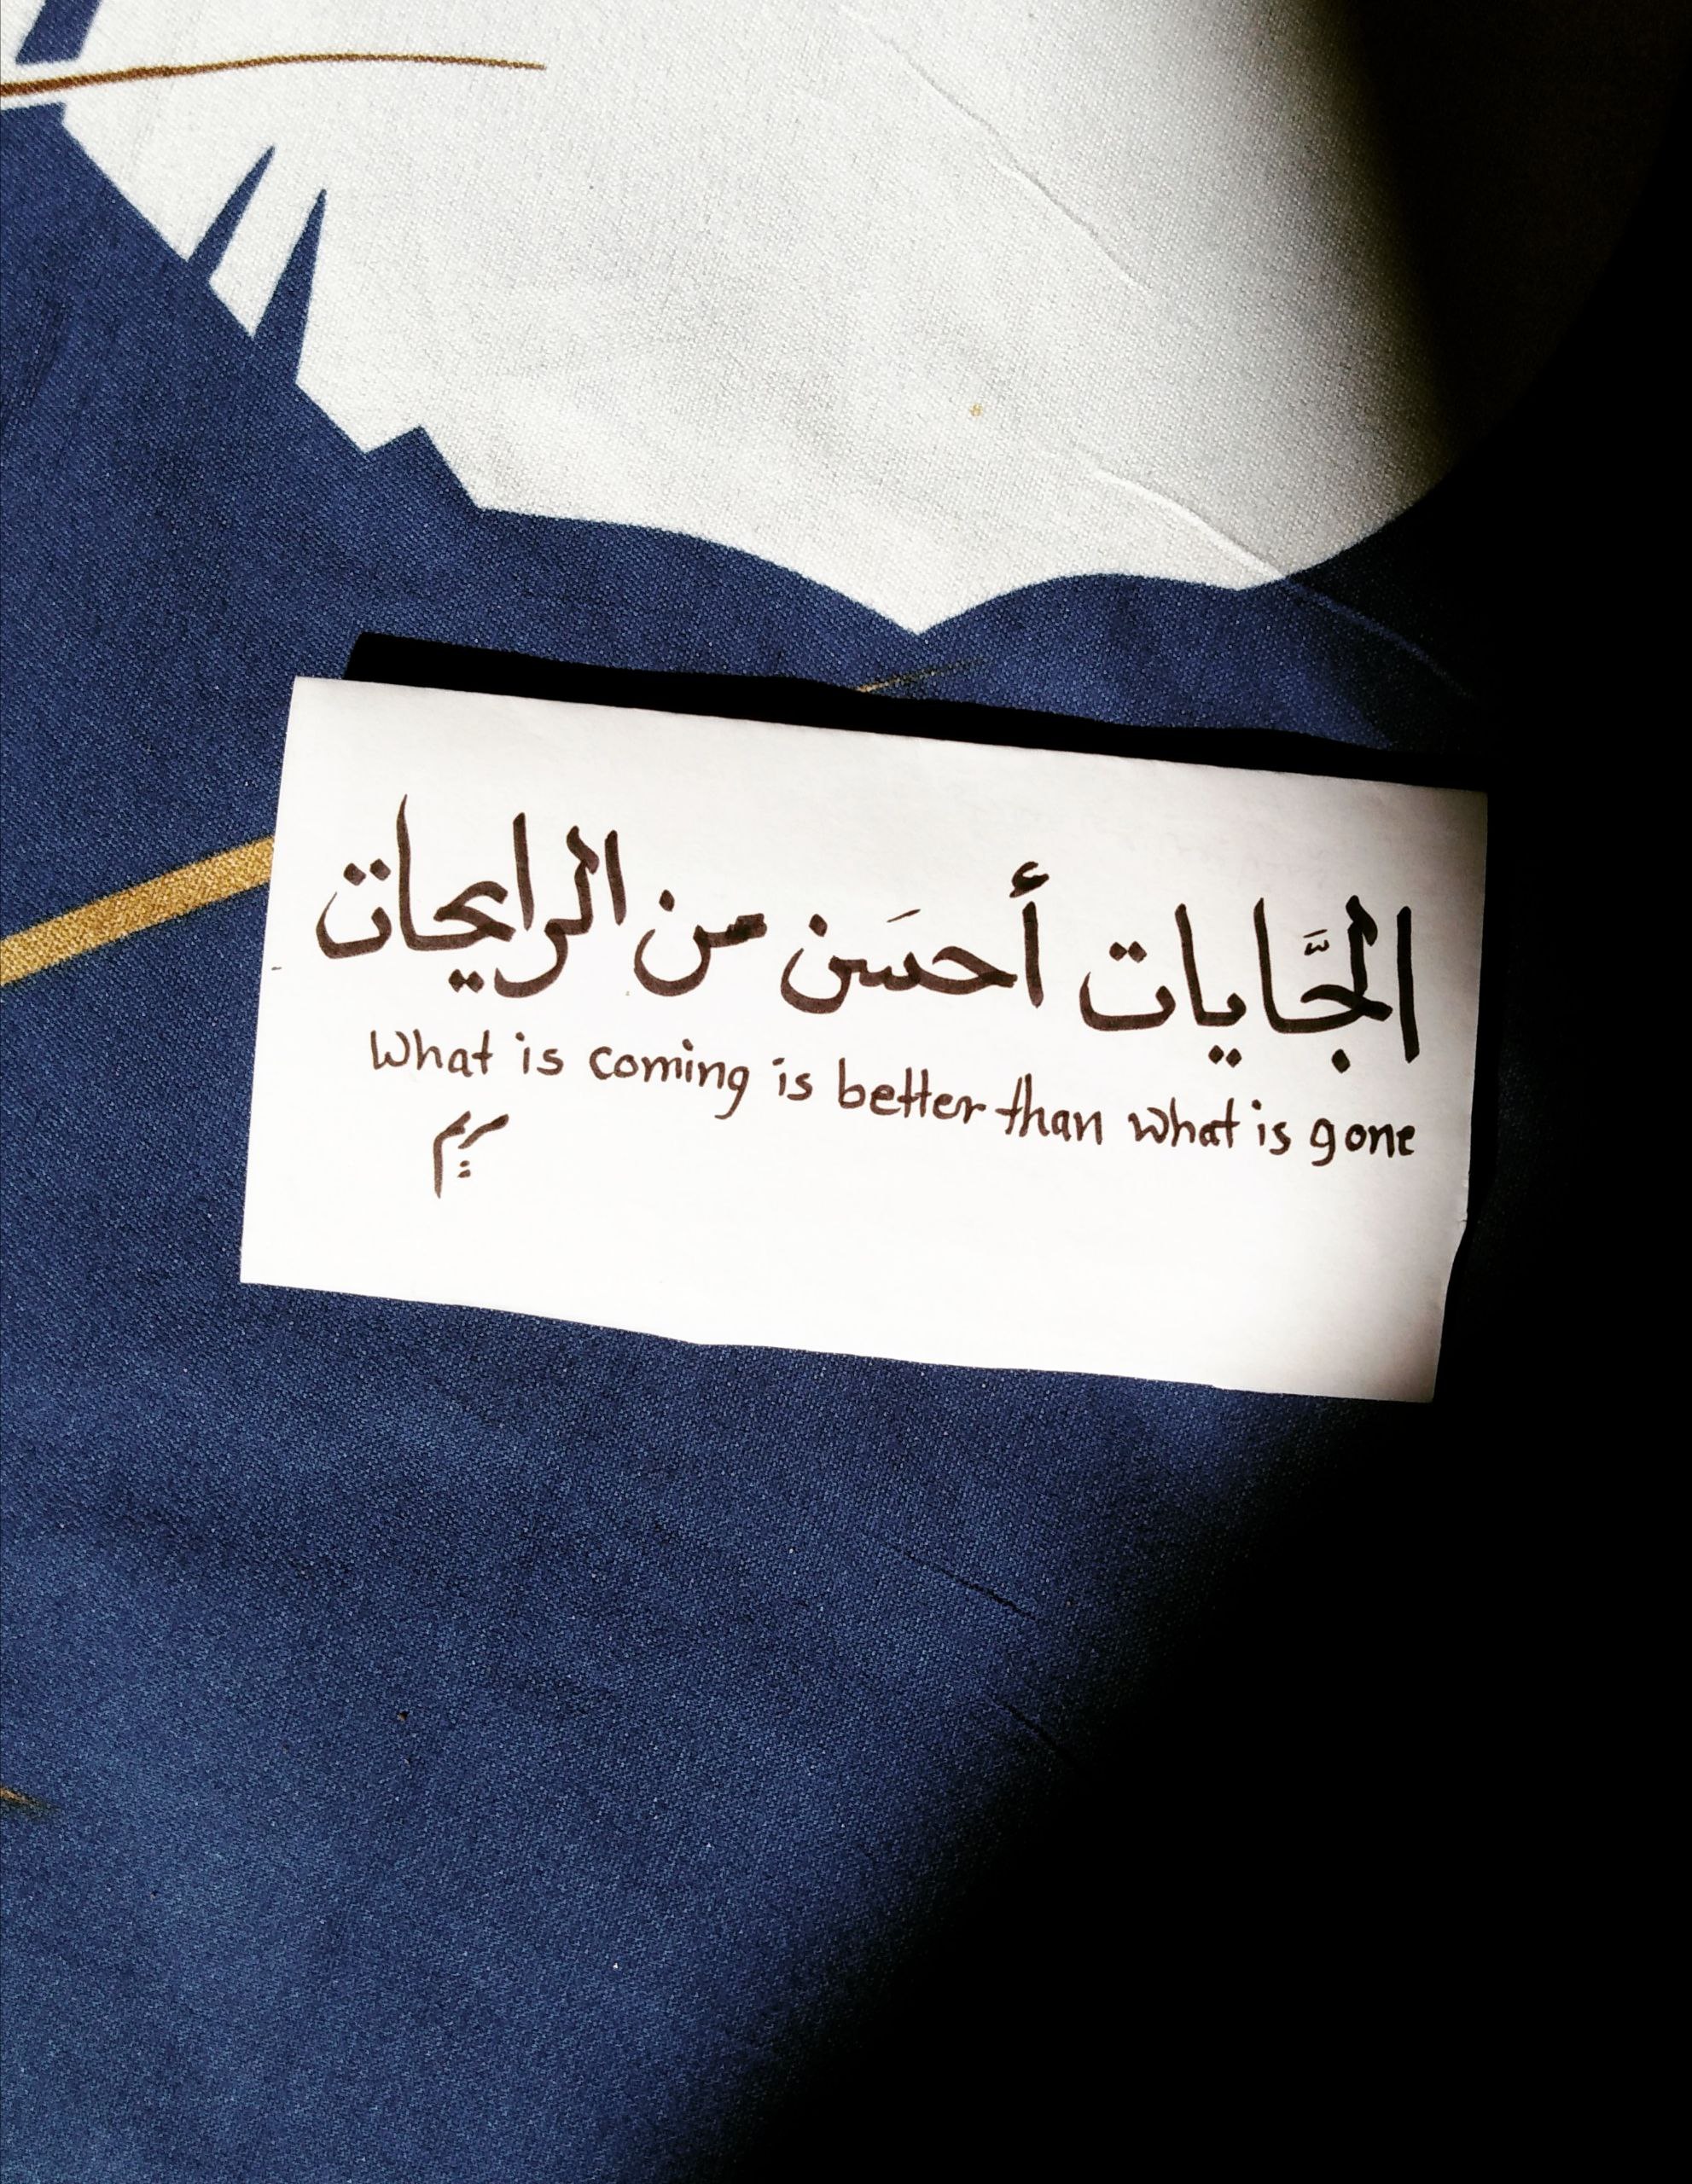 الجَّايات أحسَن من الرايحات
What is coming is better than what is gone
مريم